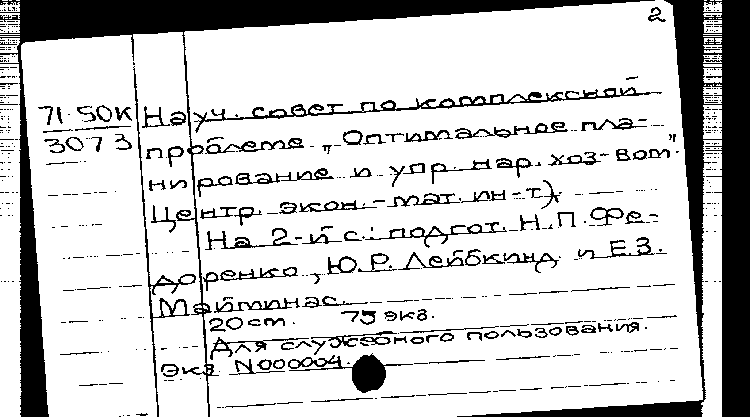 2
71-50К Науч. совет по комплексной
3073 проблеме „Оптимальное пла-
нирование и упр. нар. хоз-вом".
Центр. экон.-мат. ин-т).
На 2-й с.: подгот. Н.П.Фе-
доренко, Ю.Р. Лейбкинд и Е.З.
Майминас.
20 ст. 75 экз.
Для служебного пользования.
Экз. N000004.